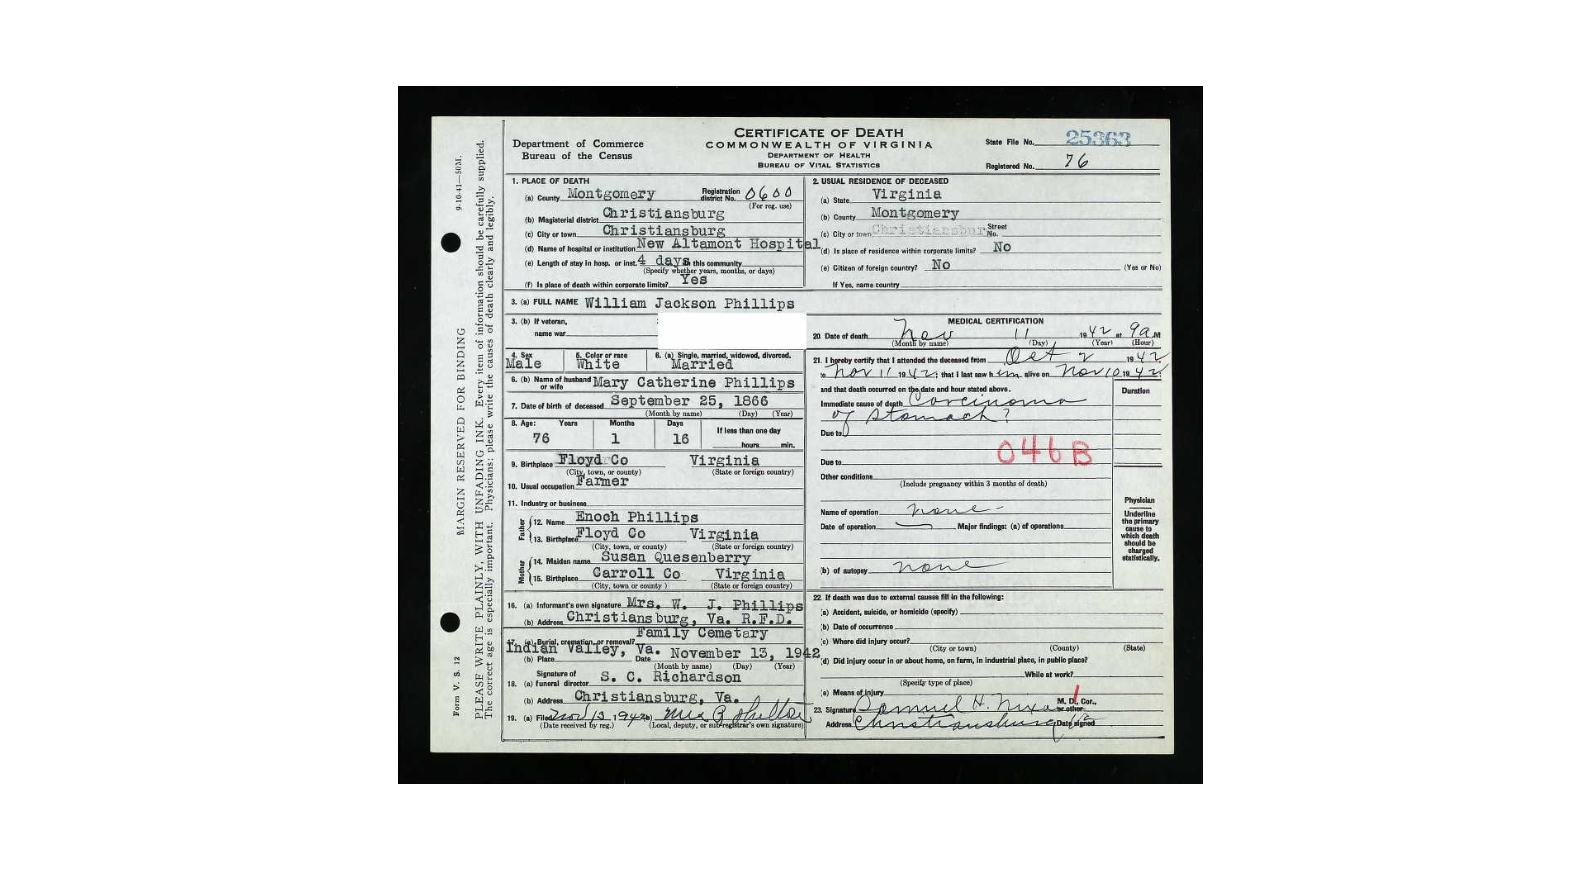 CERTIFICATE OF DEATH
COMMONWEALTH OF VIRGINIA
DEPARTMENT OF HEALTH
BUREAU OF VITAL STATISTICS
Department of Commerce
Bureau of the Census
State File No. 25363
Registered No. 76
9-10-41—50M.
MARGIN RESERVED FOR BINDING
Form V. S. 12
PLEASE WRITE PLAINLY, WITH UNFADING INK. Every item of information should be carefully supplied.
The correct age is especially important. Physicians: please write the causes of death clearly and legibly.
1. PLACE OF DEATH
(a) County Montgomery Registration district No. 0600
(For reg. use)
(b) Magisterial district Christiansburg
(c) City or town Christiansburg
(d) Name of hospital or institution New Altamont Hospital
(e) Length of stay in hosp. or inst. 4 days In this community
(Specify whether years, months, or days)
(f) Is place of death within corporate limits? Yes
2. USUAL RESIDENCE OF DECEASED
(a) State Virginia
(b) County Montgomery
(c) City or town Christiansburg Street No.
(d) Is place of residence within corporate limits? No
(e) Citizen of foreign country? No (Yes or No)
If Yes, name country
3. (a) FULL NAME William Jackson Phillips
3. (b) If veteran,
name war
4. Sex Male
5. Color or race White
6. (a) Single, married, widowed, divorced. Married
6. (b) Name of husband or wife Mary Catherine Phillips
7. Date of birth of deceased September 25, 1866
(Month by name) (Day) (Year)
8. Age: Years Months Days If less than one day
76 1 16 hours min.
9. Birthplace Floyd Co Virginia
(City, town, or county) (State or foreign country)
10. Usual occupation Farmer
11. Industry or business
Father
12. Name Enoch Phillips
13. Birthplace Floyd Co Virginia
(City, town, or county) (State or foreign country)
Mother
14. Maiden name Susan Quesenberry
15. Birthplace Carroll Co Virginia
(City, town or county) (State or foreign country)
16. (a) Informant's own signature Mrs. W. J. Phillips
(b) Address Christiansburg, Va. R.F.D.
17. (a) Burial, cremation, or removal? Family Cemetary
Indian Valley, Va.
(b) Place Date November 13, 1942
(Month by name) (Day) (Year)
18. (a) Signature of funeral director S. C. Richardson
(b) Address Christiansburg, Va.
19. (a) Filed Nov 13 1942 (b) Mrs B Shelton
(Date received by reg.) (Local, deputy, or sub-registrar's own signature)
MEDICAL CERTIFICATION
20. Date of death Nov 11 1942 at 9a M
(Month by name) (Day) (Year) (Hour)
21. I hereby certify that I attended the deceased from Oct 2 1942
to Nov 11 1942; that I last saw him alive on Nov 10 1942
and that death occurred on the date and hour stated above.
Duration
Immediate cause of death Carcinoma
of stomach ?
Due to
046B
Due to
Other conditions
(Include pregnancy within 3 months of death)
Name of operation none
Date of operation Major findings: (a) of operations
(b) of autopsy none
Physician
Underline the primary cause to which death should be charged statistically.
22. If death was due to external causes fill in the following:
(a) Accident, suicide, or homicide (specify)
(b) Date of occurrence
(c) Where did injury occur?
(City or town) (County) (State)
(d) Did injury occur in or about home, on farm, in industrial place, in public place?
While at work?
(Specify type of place)
(e) Means of injury
23. Signature Samuel H. M. D., Cor., or other
Address Christiansburg Date signed